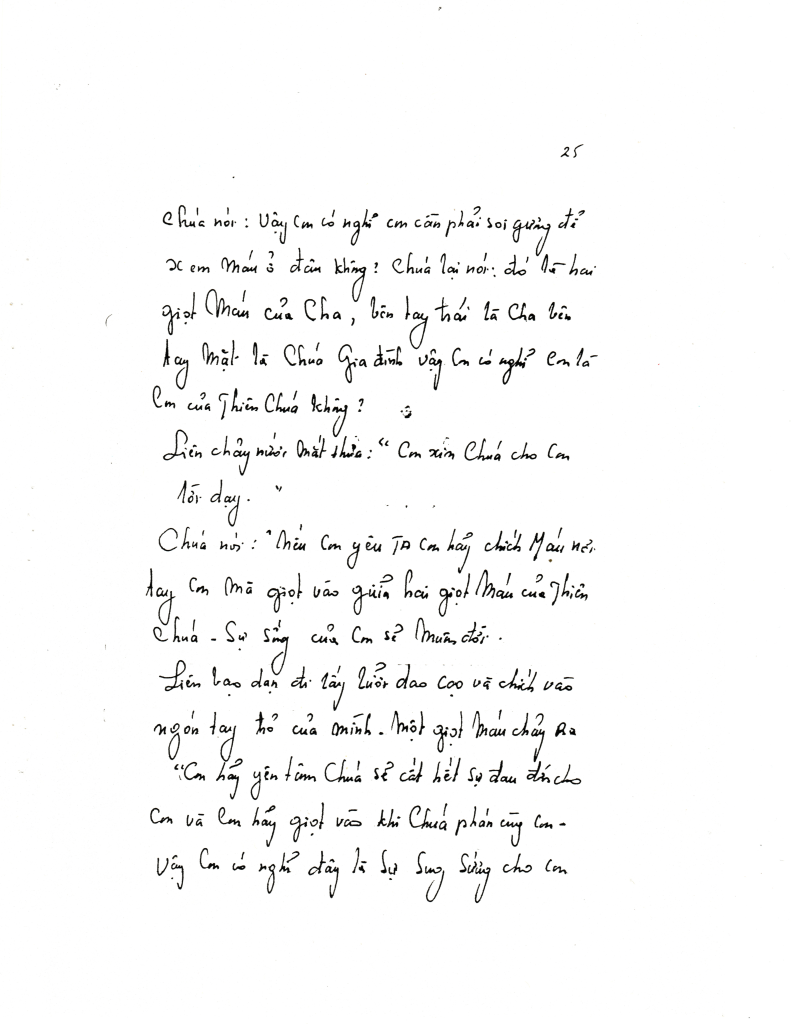 25
Chúa nói: Vậy con có nghĩ con cần phải soi gương để
xem Máu ở đâu không? Chúa lại nói: đó là hai
giọt Máu của Cha, bên tay trái là Cha bên
tay Mặt là Chúa Gia đình vậy con có nghĩ con là
con của Thiên Chúa không?
Liên chảy nước Mắt thưa: " Con xin Chúa cho con
lời dạy. "
Chúa nói: " Nếu con yêu TA con hãy chích Máu nơi
tay con mà giọt vào giữa hai giọt Máu của Thiên
Chúa - Sự sống của con sẽ Muôn đời.
Liên bạo dạn đi lấy lưỡi dao cạo và chích vào
ngón tay trỏ của mình. Một giọt Máu chảy Ra
"Con hãy yên tâm Chúa sẽ cất hết sự đau đớn cho
con và con hãy giọt vào khi Chúa phán cùng con -
Vậy con có nghĩ đây là Sự Sung Sướng cho con